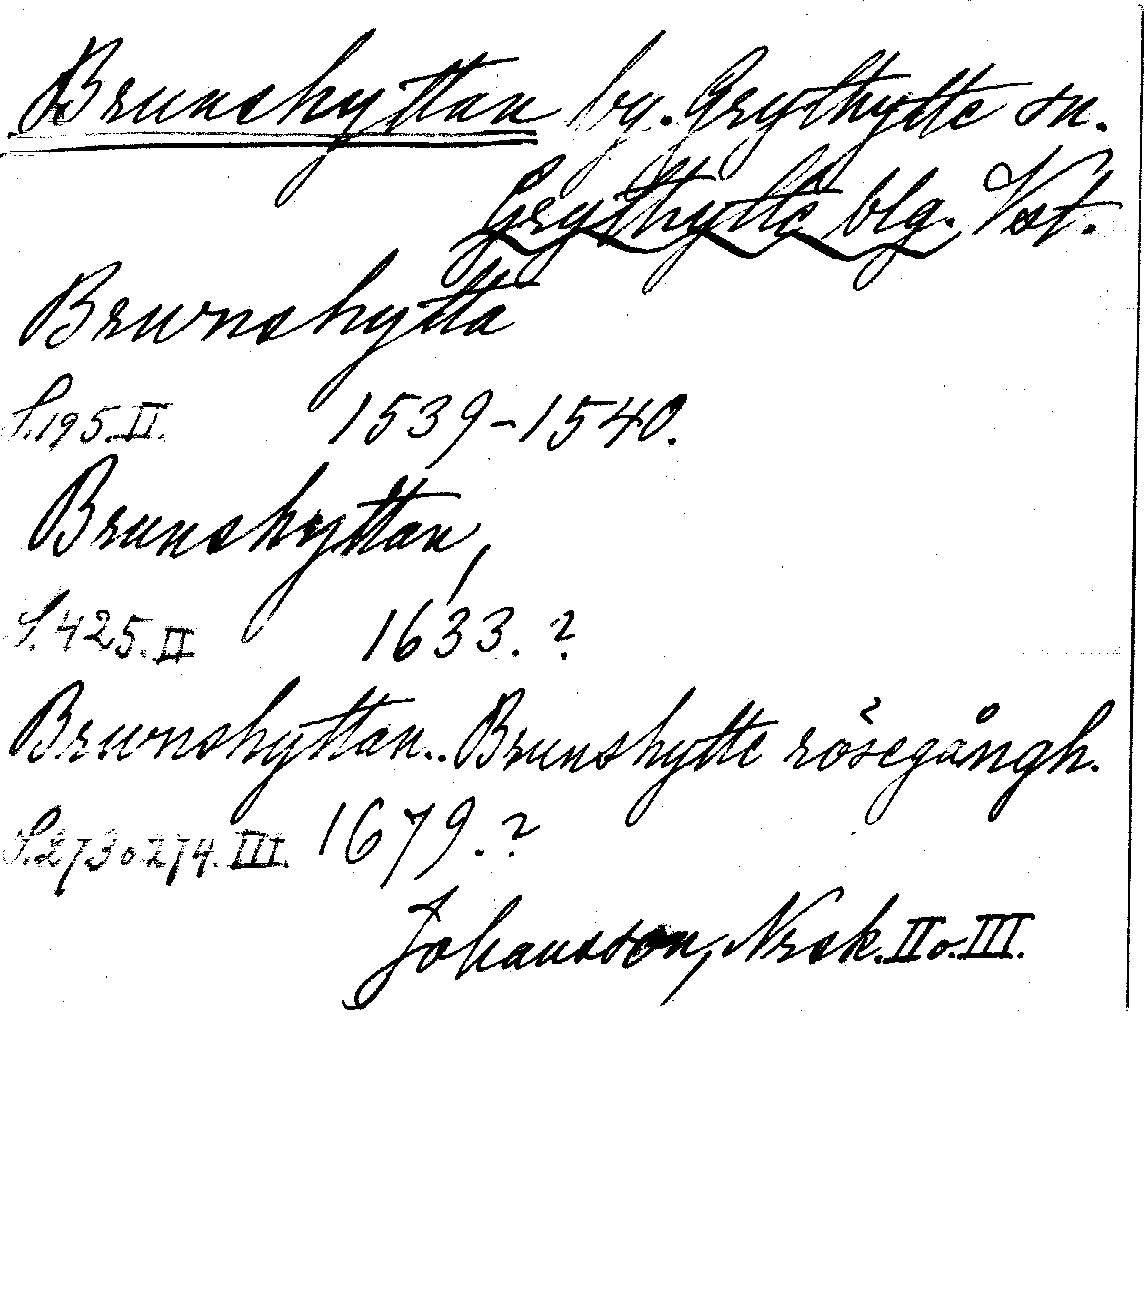 Brunshyttan by. Grythytte sn.
Grythytte blg. Vst.
Brwnshytta
S.195.II. 1539-1540.
Brunshyttan,
S.425.II 1633.?
Brwnshyttan.. Brunshytte rösegångh.
S.273 o 274. III. 1679.?
Johansson, Nrsk. II o. III.